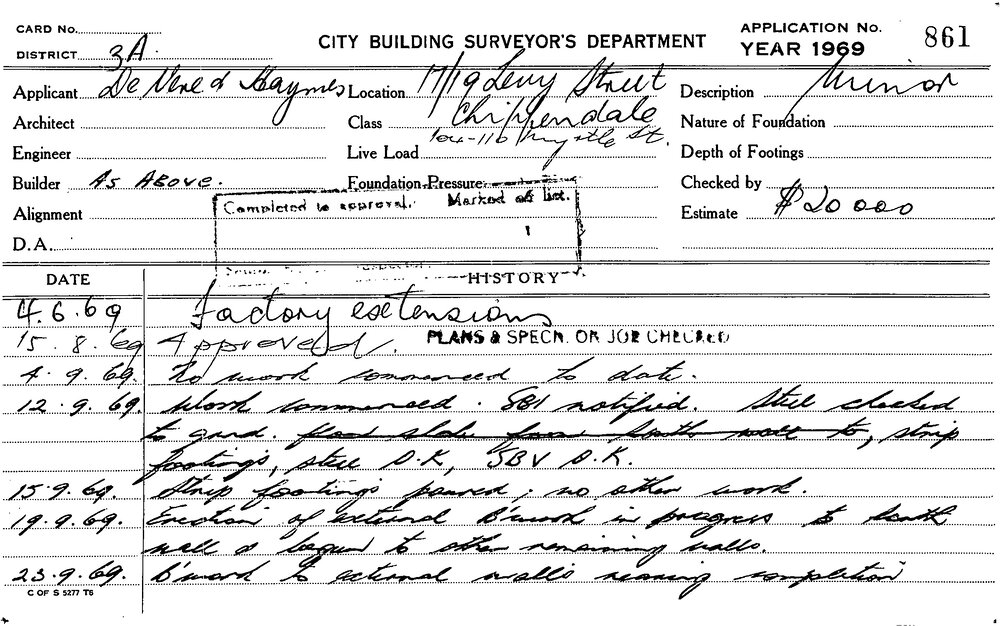 CARD No.
DISTRICT 3A.
CITY BUILDING SURVEYOR'S DEPARTMENT
APPLICATION No. 861
YEAR 1969
Applicant De Vere & Haymes Location 17/19 Levy Street Description Minor
Architect Class Chippendale Nature of Foundation
104-116 Myrtle St.
Engineer Live Load Depth of Footings
Builder As Above. Foundation Pressure Checked by
Completed to approval. Marked off list.
Alignment Estimate $20 000
D.A.
DATE HISTORY
4.6.69 Factory extensions
15.8.69 Approved. PLANS & SPECN. ON JOB CHECKED
4.9.69. No work commenced to date.
12.9.69. Work commenced. SBI notified. Steel checked
to grnd. floor slabs from South wall to, strip
footings, steel O.K, SBV O.K.
15.9.69. Strip footings poured; no other work.
19.9.69. Erection of external B'work in progress to South
wall & begun to other remaining walls.
23.9.69. B'work to external walls nearing completion
C OF S 5277 T6